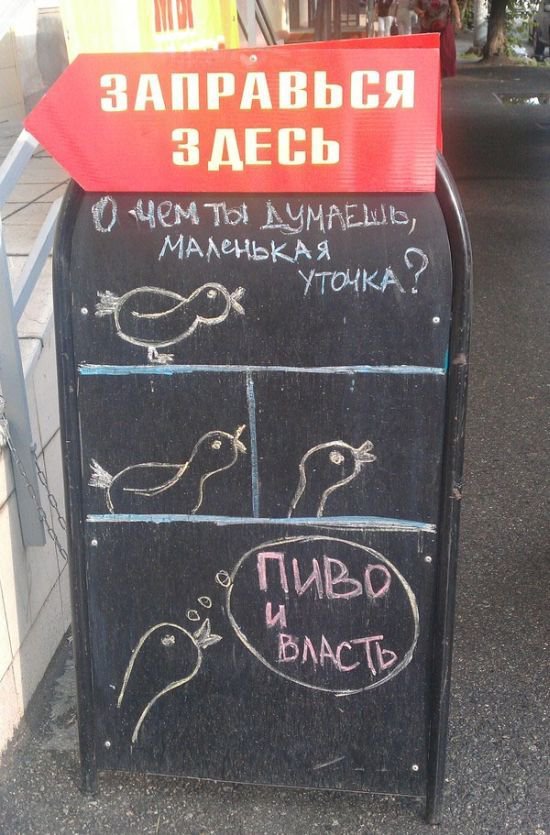 МЫ
ЗАПРАВЬСЯ
ЗДЕСЬ
О ЧЕМ ТЫ ДУМАЕШЬ,
МАЛЕНЬКАЯ
УТОЧКА?
ПИВО
И
ВЛАСТЬ